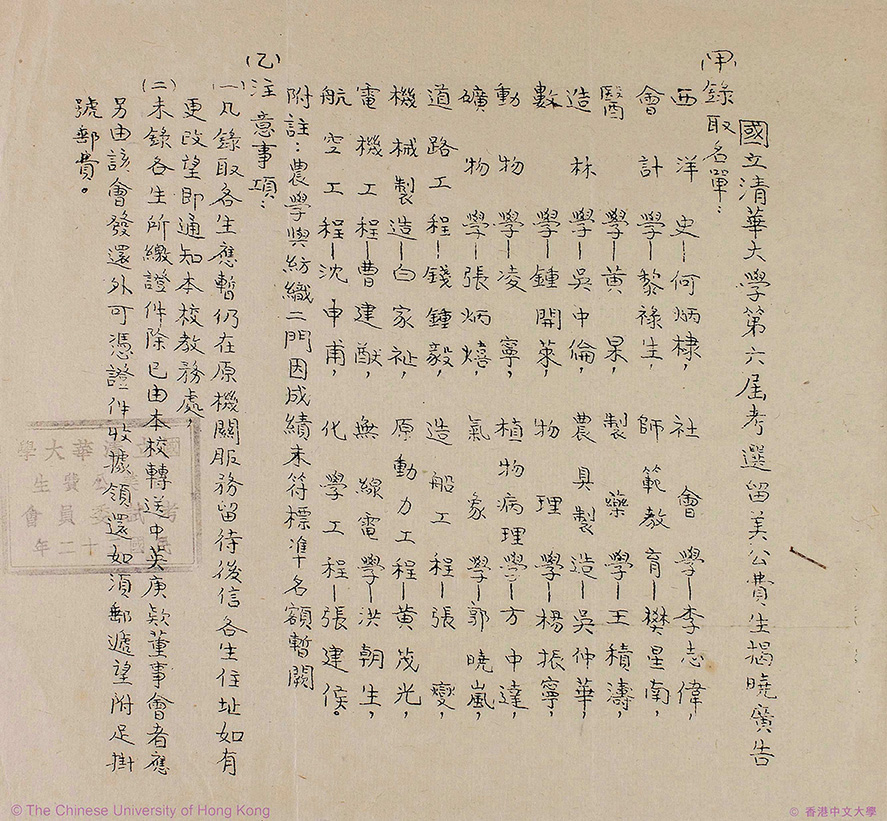 國立清華大學第六屆考選留美公費生揭曉廣告
(甲)錄取名單：
西洋史—何炳棣，社會學—李志偉，
會計學—黎祿生，師範教育—樊星南，
醫學—黃杲，製藥學—王積濤，
造林學—吳中倫，農具製造—吳仲華，
數學—鍾開萊，物理學—楊振寧，
動物學—凌寧，植物病理學—方中達，
礦物學—張炳熺，氣象學—郭曉嵐，
道路工程—錢鍾毅，造船工程—張燮，
機械製造—白家祉，原動力工程—黃茂光，
電機工程—曹建猷，無線電學—洪朝生，
航空工程—沈申甫，化學工程—張建侯。
附註：農學與紡織二門因成績未符標準十名額暫闕
(乙)注意事項：
(一)凡錄取各生應暫仍在原機關服務留待後信各生住址如有
更改望即通知本校教務處，
(二)未錄各生所繳證件除已由本校轉送中英庚欵董事會者應
另由該會發還外可憑證件收據領還如須郵遞望附足掛
號郵費。
國立清華大學
© The Chinese University of Hong Kong
© 香港中文大學